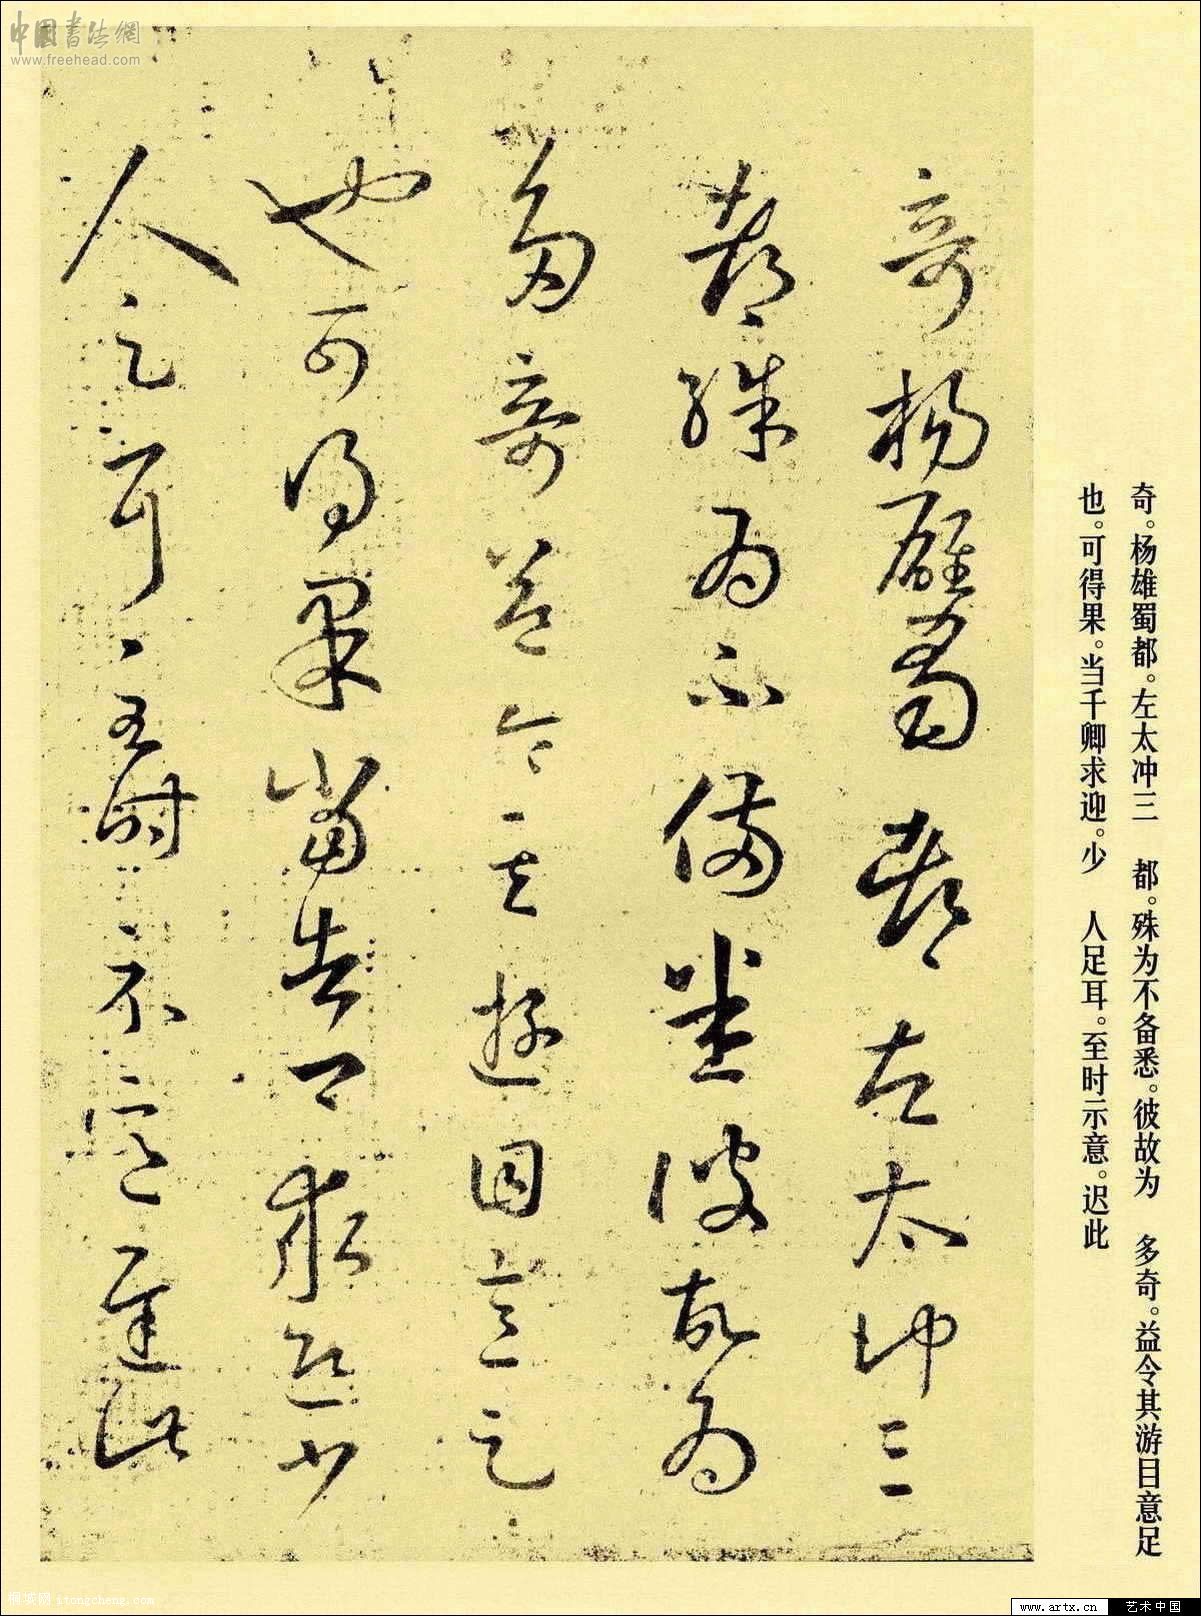 中国书法網
www.freehead.com
奇。杨雄蜀都。左太冲三 都。殊为不备悉。彼故为 多奇。益令其游目意足
也。可得果。当千卿求迎。少 人足耳。至时示意。迟此
奇楊雄蜀都左太冲三
都殊為不備悉彼故為
多奇益令其遊目意足
也可得果當告卿求迎少
人足耳至時示意遲此
桐城网 itongcheng.com
www.artx.cn 艺术中国